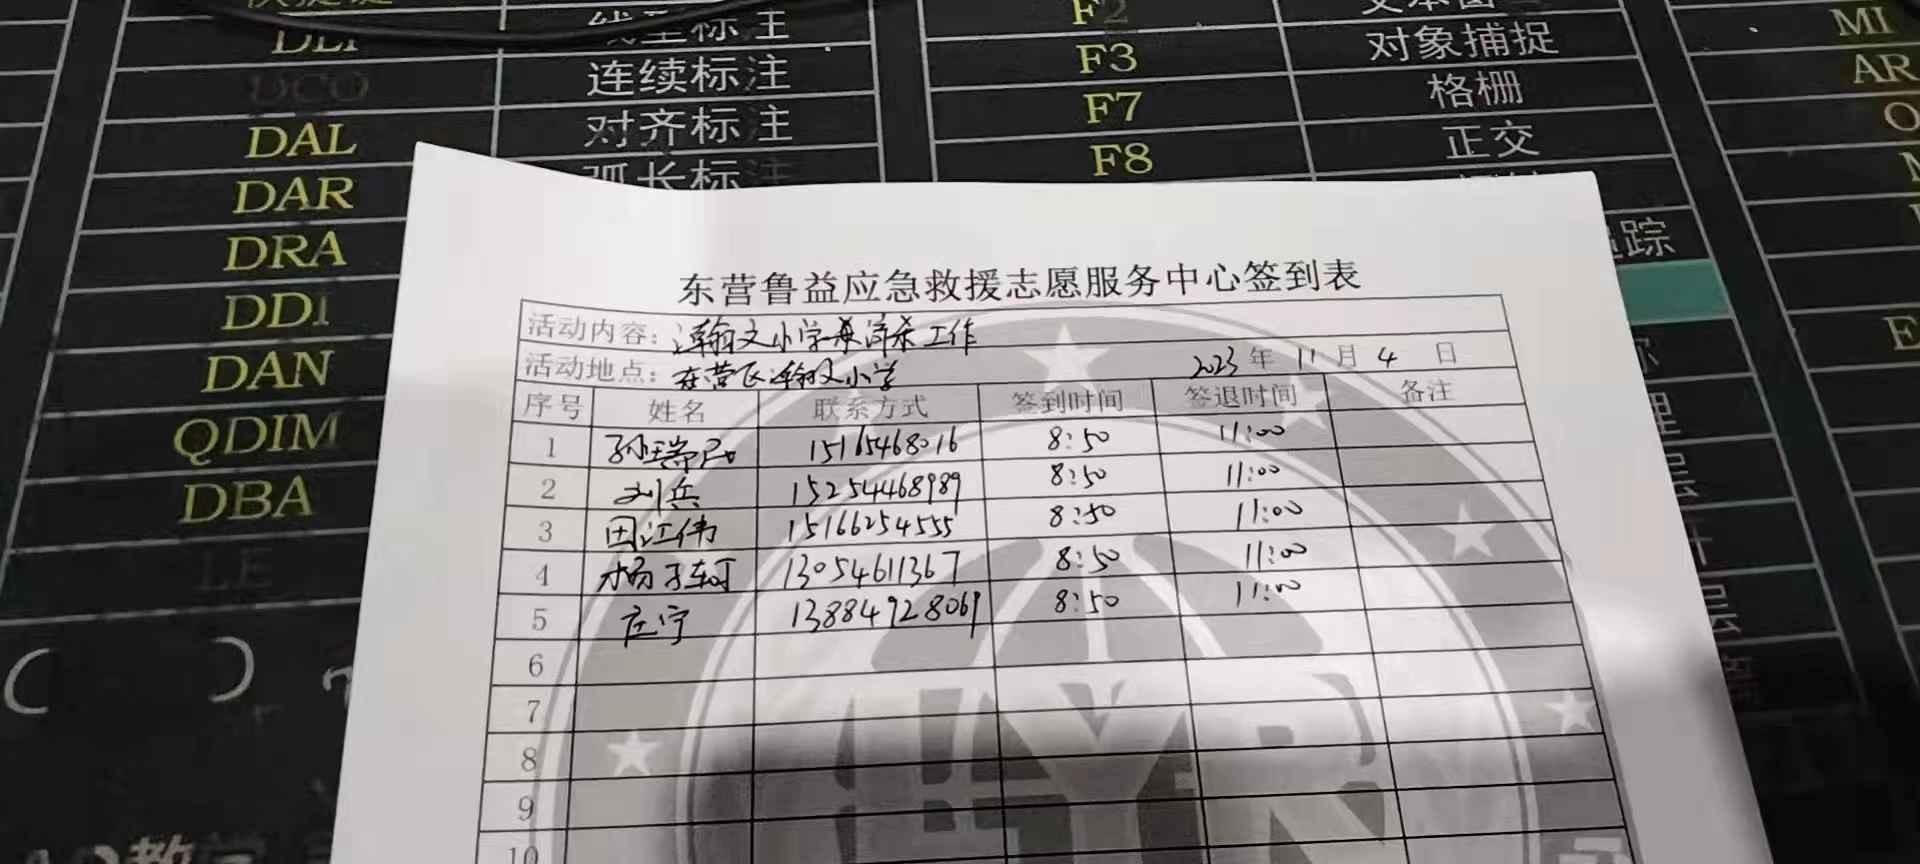 DLI 线型标注 F2
DCO 连续标注 F3 对象捕捉 MI
DAL 对齐标注 F7 格栅 AR
DAR 弧长标注 F8 正交
DRA 追踪
DDI
DAN
QDIM
DBA
LE
东营鲁益应急救援志愿服务中心签到表
活动内容: 瀚文小学 消杀工作
活动地点: 东营区瀚文小学 2023 年 11 月 4 日
序号 姓名 联系方式 签到时间 签退时间 备注
1 孙瑞民 15165468016 8:50 11:00
2 刘兵 15254468989 8:50 11:00
3 田江伟 15166254555 8:50 11:00
4 杨子轲 13054611367 8:50 11:00
5 庄宁 13884928069 8:50 11:00
6
7
8
9
10